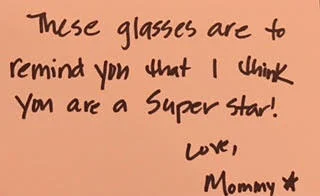 These glasses are to
remind you that I think
you are a Super star!
Love,
Mommy☆